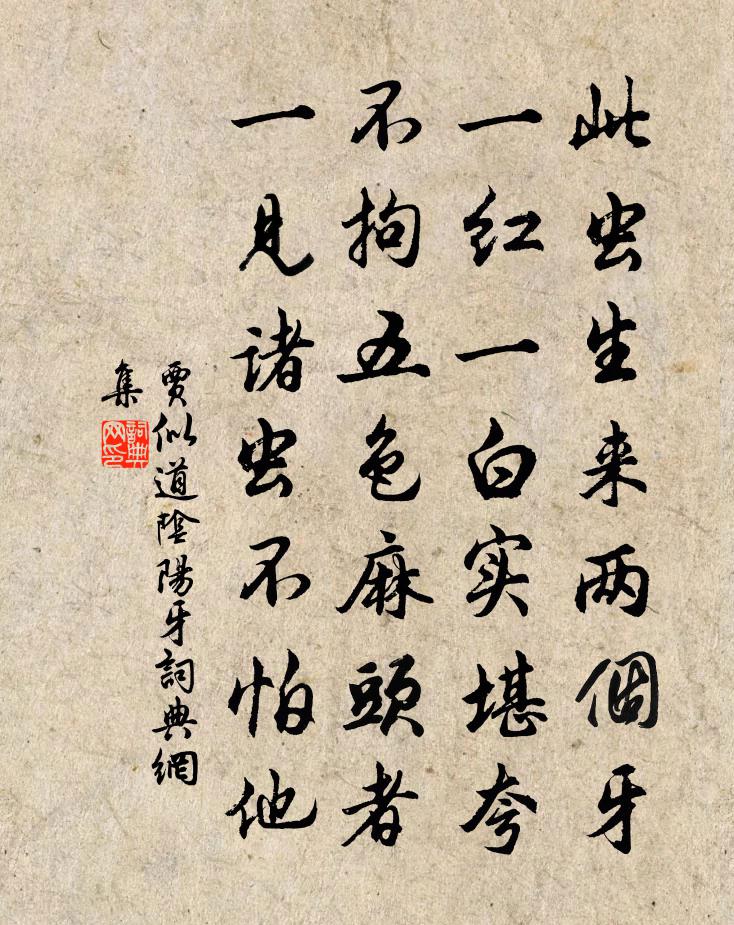 此虫生来两個牙
一红一白实堪夸
不拘五色麻頭者
一見诸虫不怕他
賈似道陰陽牙詞典網
集
詞典
网印